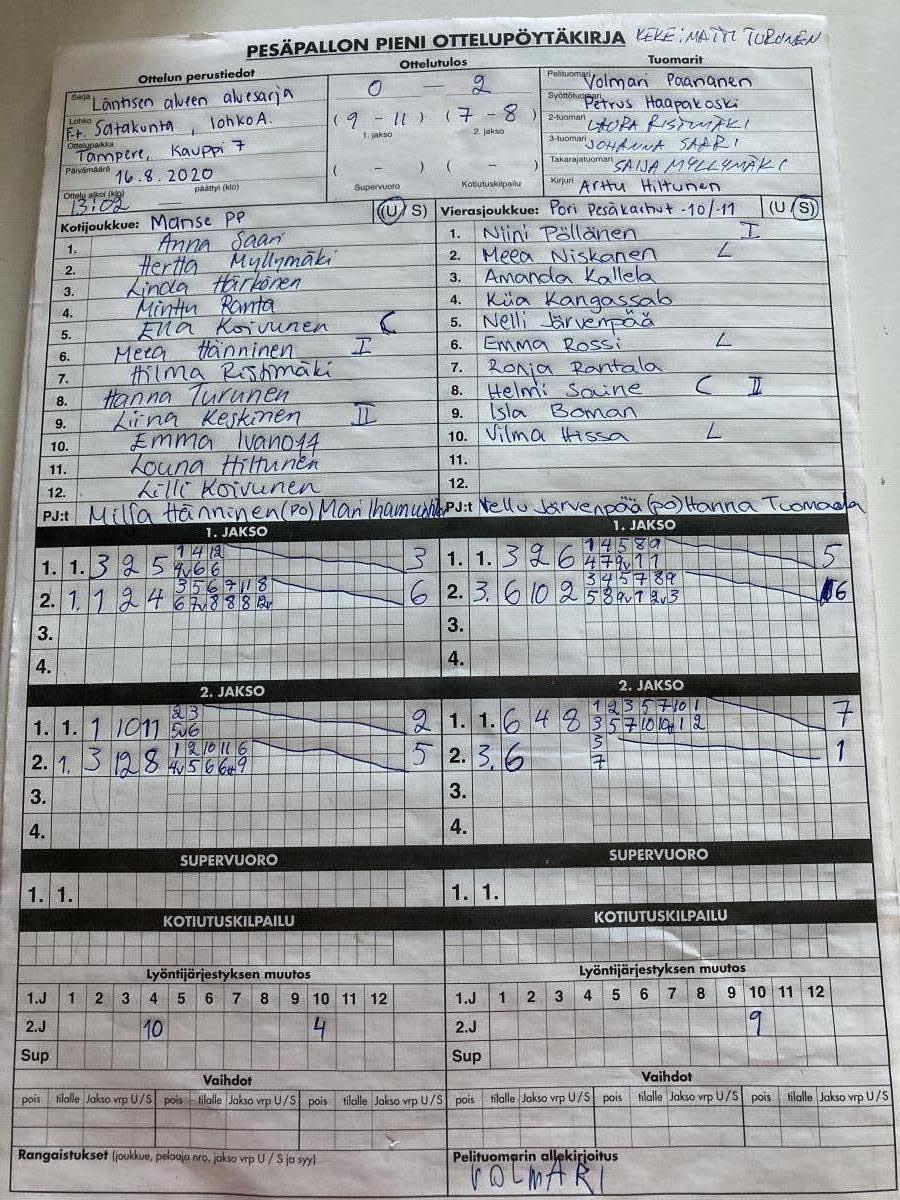 PESÄPALLON PIENI OTTELUPÖYTÄKIRJA KEKE: MATTI TURONEN
Ottelun perustiedot
Sarja Läntisen alueen aluesarja
Lohko F-t. Satakunta, lohko A.
Ottelupaikka Tampere, Kauppi 7
Päivämäärä 16.8.2020
Ottelu alkoi (klo) 13:02 päättyi (klo)
Ottelutulos
0 — 2
(9 - 11) (7 - 8)
1. jakso 2. jakso
( - ) ( - )
Supervuoro Kotiutuskilpailu
Tuomarit
Pelituomari Volmari Paananen
Syöttötuomari Petrus Haapakoski
2-tuomari LAURA RISTIMÄKI
3-tuomari JOHANNA SAARI
Takarajatuomari SAIJA MYLLYMÄKI
Kirjuri Arttu Hiltunen
Kotijoukkue: Manse PP (U/S)
1. Anna Saari
2. Hertta Myllymäki
3. Linda Härkönen
4. Minttu Ranta
5. Ella Koivunen C
6. Meea Hänninen I
7. Hilma Ristimäki
8. Hanna Turunen
9. Liina Keskinen II
10. Emma Ivanoff
11. Louna Hiltunen
12. Lilli Koivunen
PJ:t Milja Hänninen (PO) Mari
Vierasjoukkue: Pori Pesäkarhut -10/-11 (U/S)
1. Niini Pöllänen I
2. Meea Niskanen L
3. Amanda Kallela
4. Kiia Kangassalo
5. Nelli Järvenpää
6. Emma Rossi L
7. Ronja Rantala
8. Helmi Saine C II
9. Isla Boman
10. Vilma Hissa L
11.
12.
PJ:t Vellu Järvenpää (po) Hanna Tuomaala
1. JAKSO
1. 1. 3 2 5 1 4 12 3
4v 6 6
2. 1. 1 2 4 3 5 6 7 11 8 6
6 7v 8 8 8 12v
3.
4.
1. JAKSO
1. 1. 3 2 6 1 4 5 8 9 5
4 7 9v 1 1
2. 3. 6 10 2 3 4 5 7 8 9 6
5 8 9v 1 2v 3
3.
4.
2. JAKSO
1. 1. 1 10 11 2 3 2
5v 6
2. 1. 3 12 8 1 2 10 11 6 5
4v 5 6 6 9
3.
4.
2. JAKSO
1. 1. 6 4 8 1 2 3 5 7 10 1 7
3 5 7 10 10 1 2
2. 3. 6 3 1
7
3.
4.
SUPERVUORO
1. 1.
SUPERVUORO
1. 1.
KOTIUTUSKILPAILU
KOTIUTUSKILPAILU
Lyöntijärjestyksen muutos
1.J 1 2 3 4 5 6 7 8 9 10 11 12
2.J 10 4
Sup
Lyöntijärjestyksen muutos
1.J 1 2 3 4 5 6 7 8 9 10 11 12
2.J 9
Sup
Vaihdot
pois tilalle Jakso vrp U/S pois tilalle Jakso vrp U/S pois tilalle Jakso vrp U/S
Vaihdot
pois tilalle Jakso vrp U/S pois tilalle Jakso vrp U/S pois tilalle Jakso vrp U/S
Rangaistukset (joukkue, pelaaja nro, jakso vrp U/S ja syy)
Pelituomarin allekirjoitus
VOLMARI